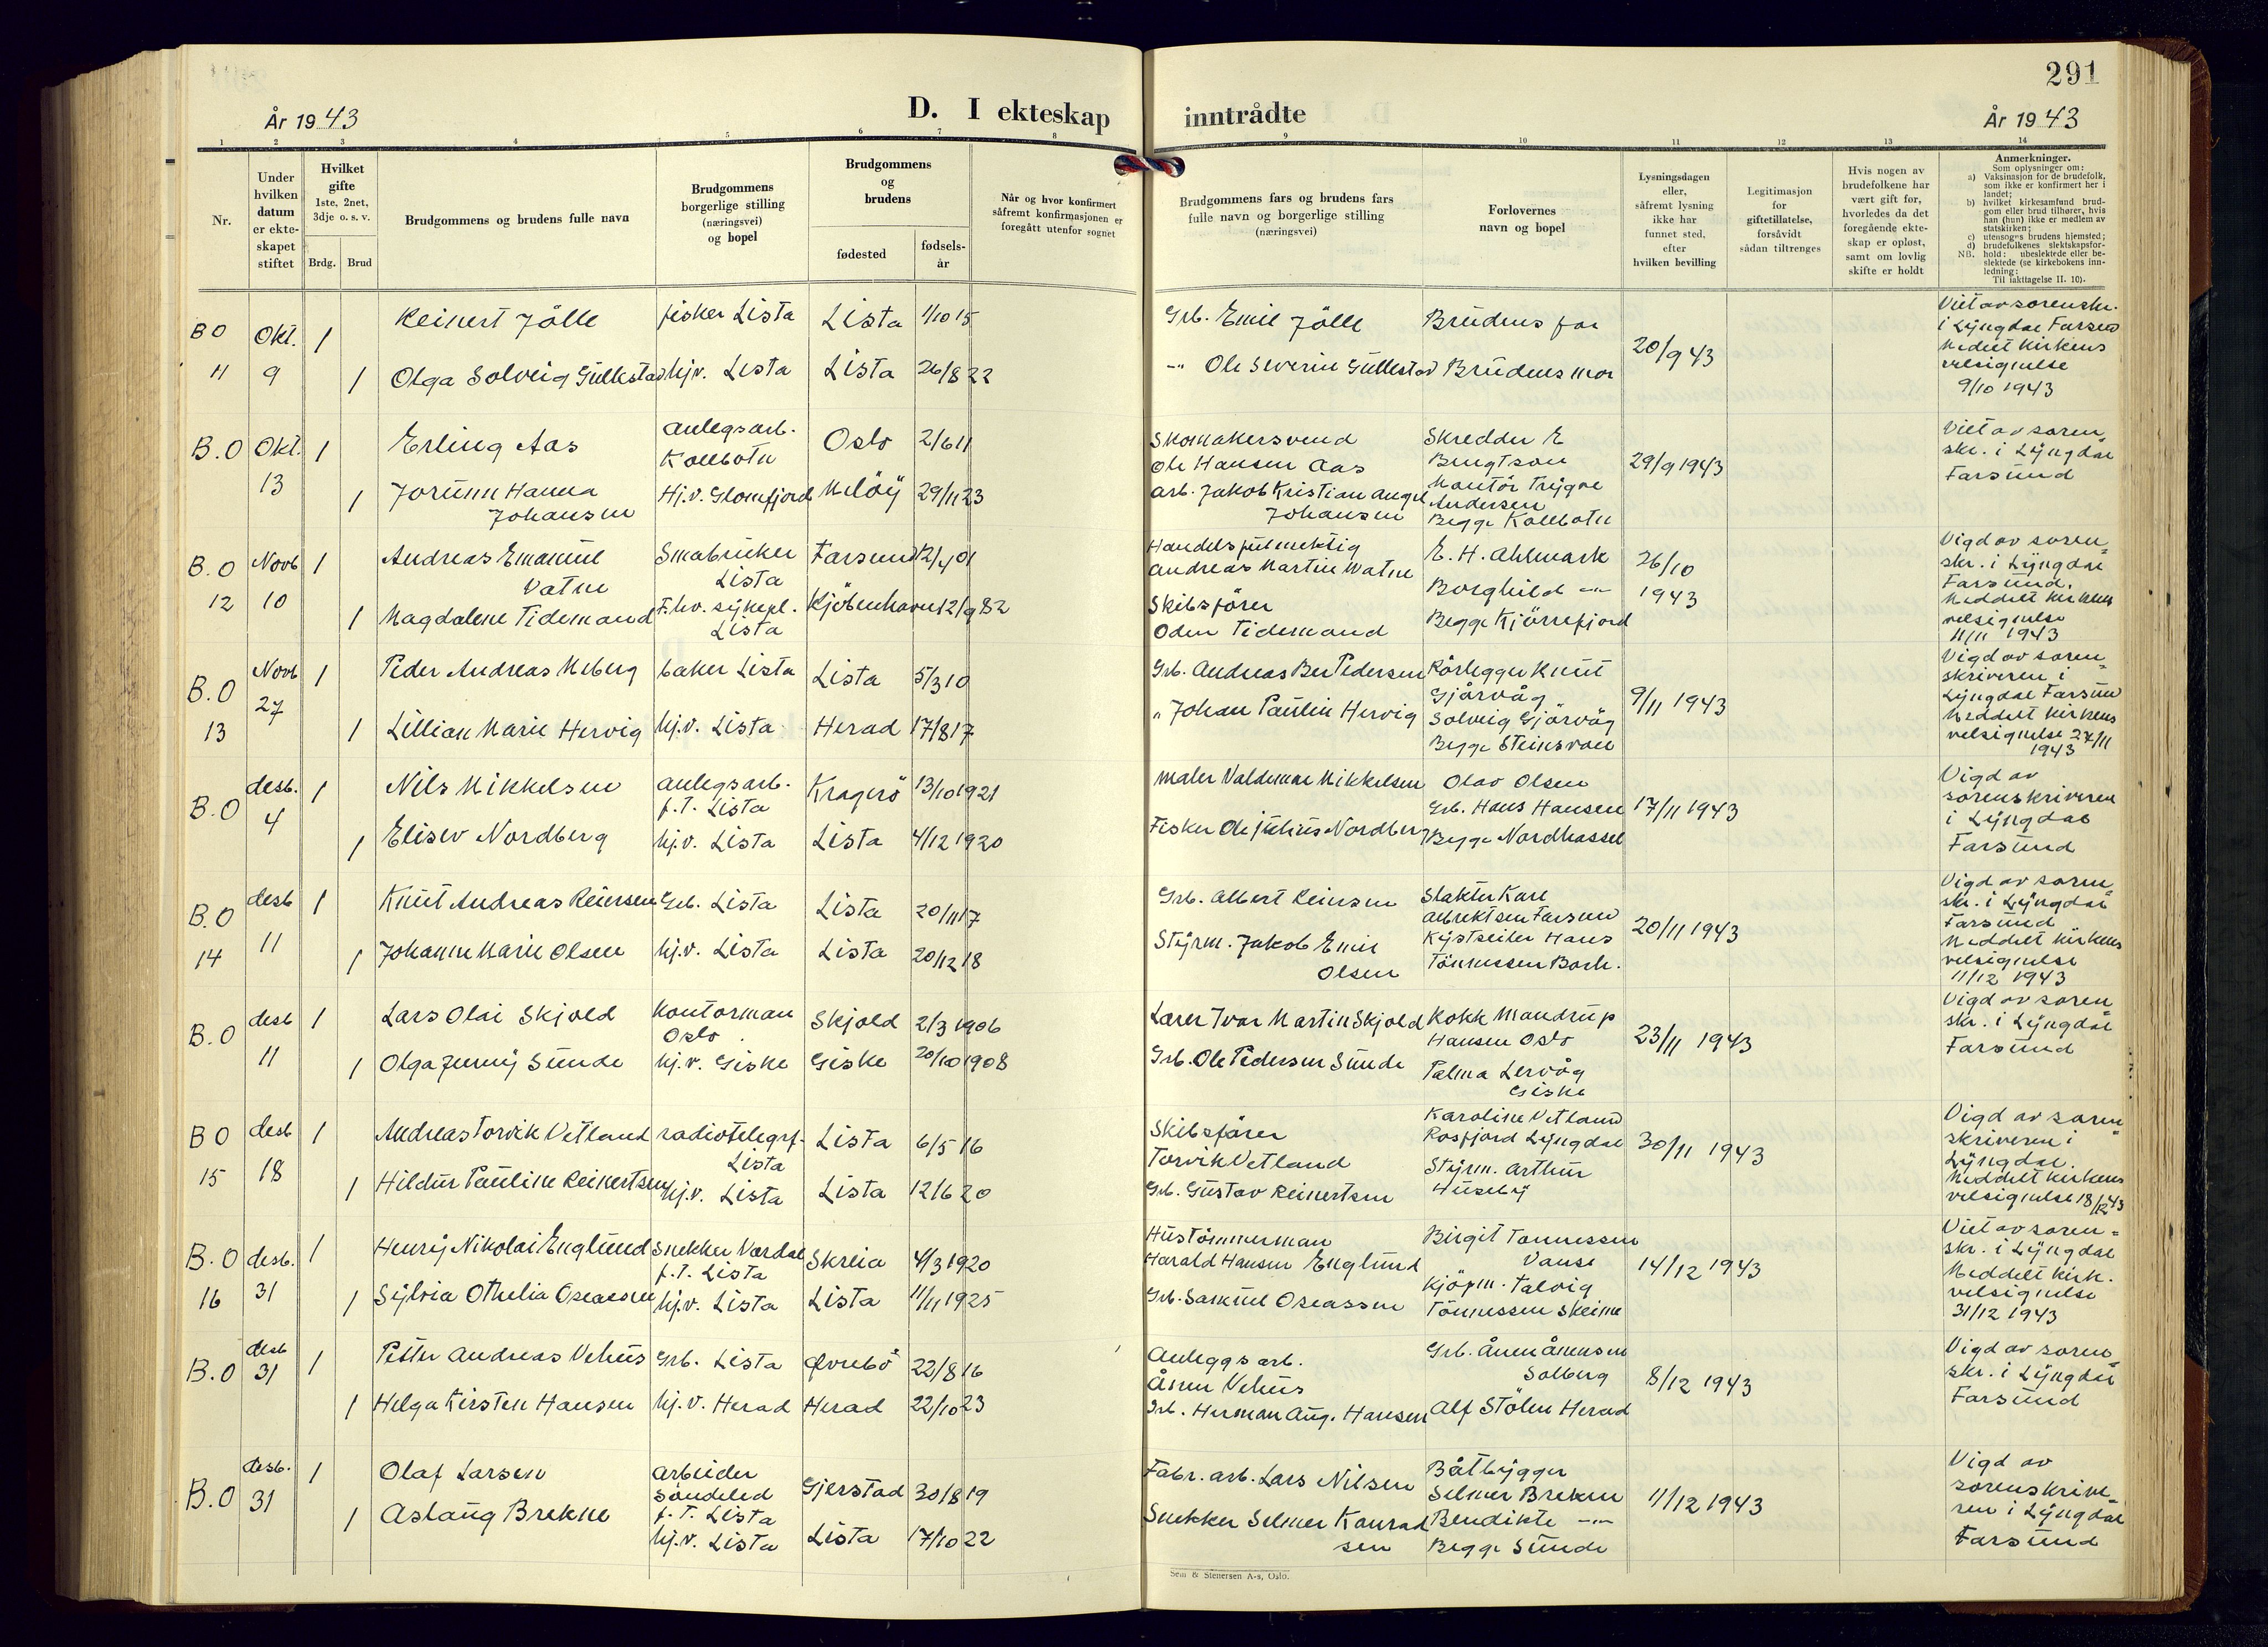 291
År 1943
D. I ekteskap inntrådte
År 1943
1 2 3 4 5 6 7 8 9 10 11 12 13 14
Nr.
Under
hvilken
datum
er ekte-
skapet
stiftet
Hvilket
gifte
1ste, 2net,
3dje o. s. v.
Brdg. Brud
Brudgommens og brudens fulle navn
Brudgommens
borgerlige stilling
(næringsvei)
og bopel
Brudgommens
og
brudens
fødested
fødsels-
år
Når og hvor konfirmert
såfremt konfirmasjonen er
foregått utenfor sognet
Brudgommens fars og brudens fars
fulle navn og borgerlige stilling
(næringsvei)
Forlovernes
navn og bopel
Lysningsdagen
eller,
såfremt lysning
ikke har
funnet sted,
efter
hvilken bevilling
Legitimasjon
for
giftetillatelse,
forsåvidt
sådan tiltrenges
Hvis nogen av
brudefolkene har
vært gift før,
hvorledes da det
foregående ekte-
skap er opløst,
samt om lovlig
skifte er holdt
Anmerkninger.
Som oplysninger om:
a) Vaksinasjon for de brudefolk,
som ikke er konfirmert her i
landet;
b) hvilket kirkesamfund brud-
gom eller brud tilhører, hvis
han (hun) ikke er medlem av
statskirken;
c) utensogns brudens hjemsted;
d) brudefolkenes slektskapsfor-
hold: ubeslektede eller be-
slektede (se kirkebokens inn-
ledning:
NB.
Til iakttagelse II. 10).
BO
11
Okt.
9
1
Reinert Jölle
fisker Lista
Lista
1/10 15
Grb. Emil Jölle
Brudens far
20/9 43
1
Olga Solveig Gullestad
hj.v. Lista
Lista
26/8 22
-"- Ole Severin Gullestad
Brudens mor
Viet av sorenskr.
i Lyngdal Farsund
Meddelt kirkens
velsignelse
9/10 1943
B.O
Okt.
13
1
Erling Aas
anlegsarb.
Kolbotn
Oslo
2/6 11
Skomakersvend
Ole Hansen Aas
Skredder E
Bengtson
29/9 1943
1
Jorunn Hanna
Johansen
Hj.v. Glomfjord
Melöy
29/11 23
arb. Jakob Kristian Angel
Johansen
Montör Trygve
Andersen
Begge Kolbotn
Viet av soren
skr. i Lyngdal
Farsund
B.O
12
Novb
10
1
Andreas Emanuel
Vatne
Småbruker
Lista
Farsund
12/4 01
Handelsfulmektig
Andreas Martin Watne
E. H. Ahlmark
26/10
1943
1
Magdalene Tidemand
F.hv. sykepl.
Lista
Kjöbenhavn
12/9 82
Skibsfører
Oden Tidemand
Borghild -"-
Begge Kjörrefjord
Vigd av soren
skr. i Lyngdal
Farsund.
Meddelt kirkens
velsignelse
11/11 1943
B.O
13
Novb
27
1
Peder Andreas Meberg
baker Lista
Lista
5/3 10
Grb. Andreas Ber Pedersen
Rörlegger Knut
Gjårvåg
9/11 1943
1
Lillian Marie Hervig
hj.v. Lista
Herad
17/8 17
" Johan Paulin Hervig
Solveig Gjärvåg
Begge Steinsvan
Vigd av soren
skriveren i
Lyngdal Farsund
Meddelt kirkens
velsignelse 27/11
1943
B.O
desb.
4
1
Nils Mikkelsen
anlegsarb.
f.T. Lista
Kragerö
13/10 1921
maler Valdemar Mikkelsen
Olav Olsen
Grb. Hans Hansen
17/11 1943
1
Elisev Nordberg
hj.v. Lista
Lista
4/12 1920
Fisker Ole Julius Nordberg
Begge Nordhassel
Vigd av
sorenskriveren
i Lyngdal
Farsund
B.O
14
desb
11
1
Knut Andreas Reiersen
Grb. Lista
Lista
20/11 17
Grb. Albert Reiersen
Slakter Karl
Albrektsen Farsund
20/11 1943
1
Johanne Marie Olsen
hj.v. Lista
Lista
20/12 18
Styrm. Jakob Emil
Olsen
Kystseiler Hans
Tönnessen Borh.
Vigd av soren
skr. i Lyngdal
Farsund
Meddelt kirkens
velsignelse
11/12 1943
B.O
desb
11
1
Lars Olai Skjold
Kontorman
Oslo
Skjold
2/3 1906
Lærer Ivar Martin Skjold
Kokk Mandrup
Hansen Oslo
23/11 1943
1
Olga Jenny Sunde
hj.v. Giske
Giske
20/10 1908
Grb. Ole Pedersen Sunde
Palma Lervåg
Giske
Vigd av soren
skr. i Lyngdal
Farsund
BO
15
desb
18
1
Andreas Torvik Vetland
radiotelegrf.
Lista
Lista
6/5 16
Skibsfører
Torvik Vetland
Karoline Vetland
Rosfjord Lyngdal
30/11 1943
1
Hildur Pauline Reinertsen
hj.v. Lista
Lista
12/6 20
Grb. Gustav Reinertsen
Styrm. Arthur
Huseby
Vigd av soren
skriveren i
Lyngdal.
Meddelt kirkens
velsignelse 18/12 43
B.O
16
desb.
31
1
Henry Nikolai Englund
Snekker Vardal
f.T. Lista
Skreia
4/3 1920
Hustömmerman
Harald Hansen Englund
Birgit Tonnessen
Vanse
14/12 1943
1
Sylvia Othelia Oseassen
hj.v. Lista
Lista
11/11 1925
Grb. Samuel Oseassen
Kjöpm. Talvig
Tönnessen Skeime
Viet av soren-
skr. i Lyngdal
Meddelt kirk.
velsignelse
31/12 1943
B.O
desb
31
1
Petter Andreas Vehus
Grb. Lista
Øvrebö
22/8 16
Anleggsarb.
Ånen Vehus
Grb. Ånen Ånensen
Solberg
8/12 1943
1
Helga Kirsten Hansen
hj.v. Herad
Herad
22/10 23
Grb. Herman Aug. Hansen
Alf Stölen Herad
Vigd av soren
skr. i Lyngdal
Farsund
B.O
desb.
31
1
Olaf Larsen
arbeider
Söndeled
f.T. Lista
Gjerstad
30/8 19
Fabr. arb. Lars Nilsen
Båtbygger
Selmer Brekne
11/12 1943
1
Aslaug Brekne
hj.v. Lista
Lista
17/10 22
Snekker Selmer Konrad
sen
Bendikte -"-
Begge Sunde
Vigd av
sorenskrive
ren i Lyngdal
Farsund
Sem & Stenersen A-s, Oslo.